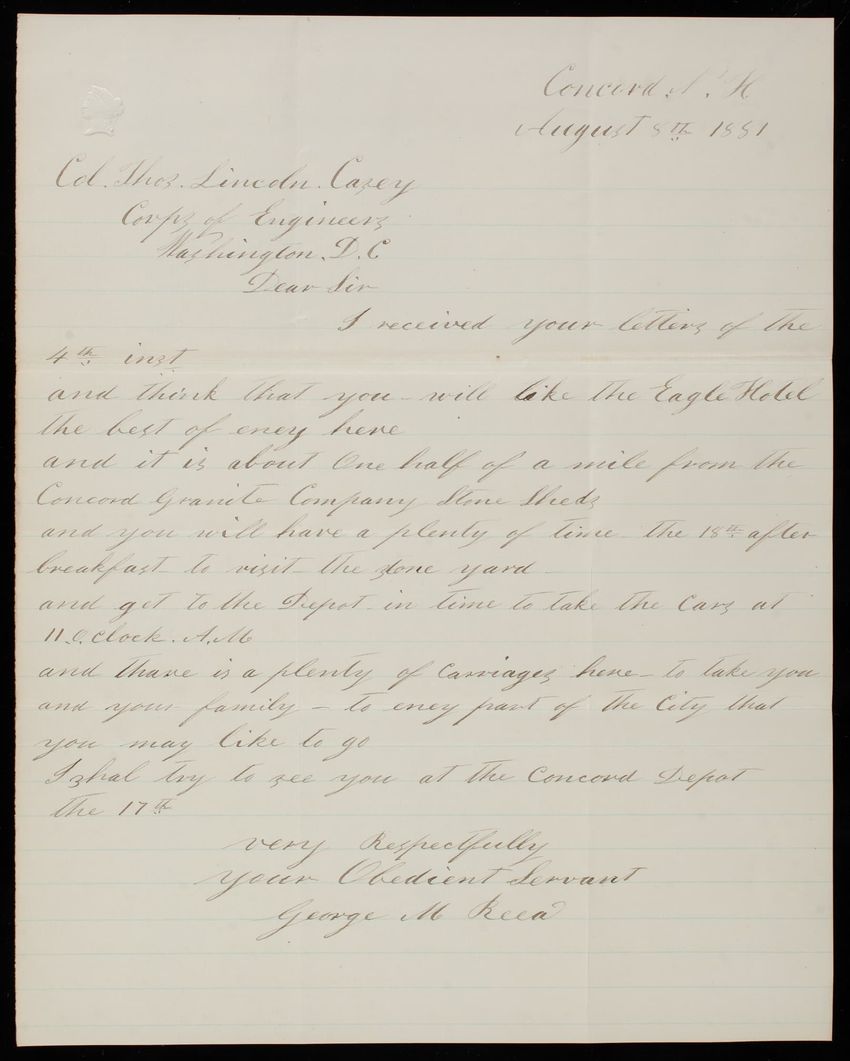 Concord. N. H
August 8th 1881
Col. Thos. Lincoln. Casey
Corps of Engineers
Washington. D. C
Dear Sir
I received your letters of the
4th inst
and think that you will like the Eagle Hotel
the best of eney here
and it is about One half of a mile from the
Concord Granite Company Stone Sheds
and you will have a plenty of time the 18th after
breakfast to visit the stone yard
and get to the Depot in time to take the Cars at
11 O, clock. A. M
and thare is a plenty of Carriages here - to take you
and your family - to eney part of the City that
you may like to go
I shal try to see you at the Concord Depot
the 17th
very Respectfully
your Obedient Servant
George M Reed